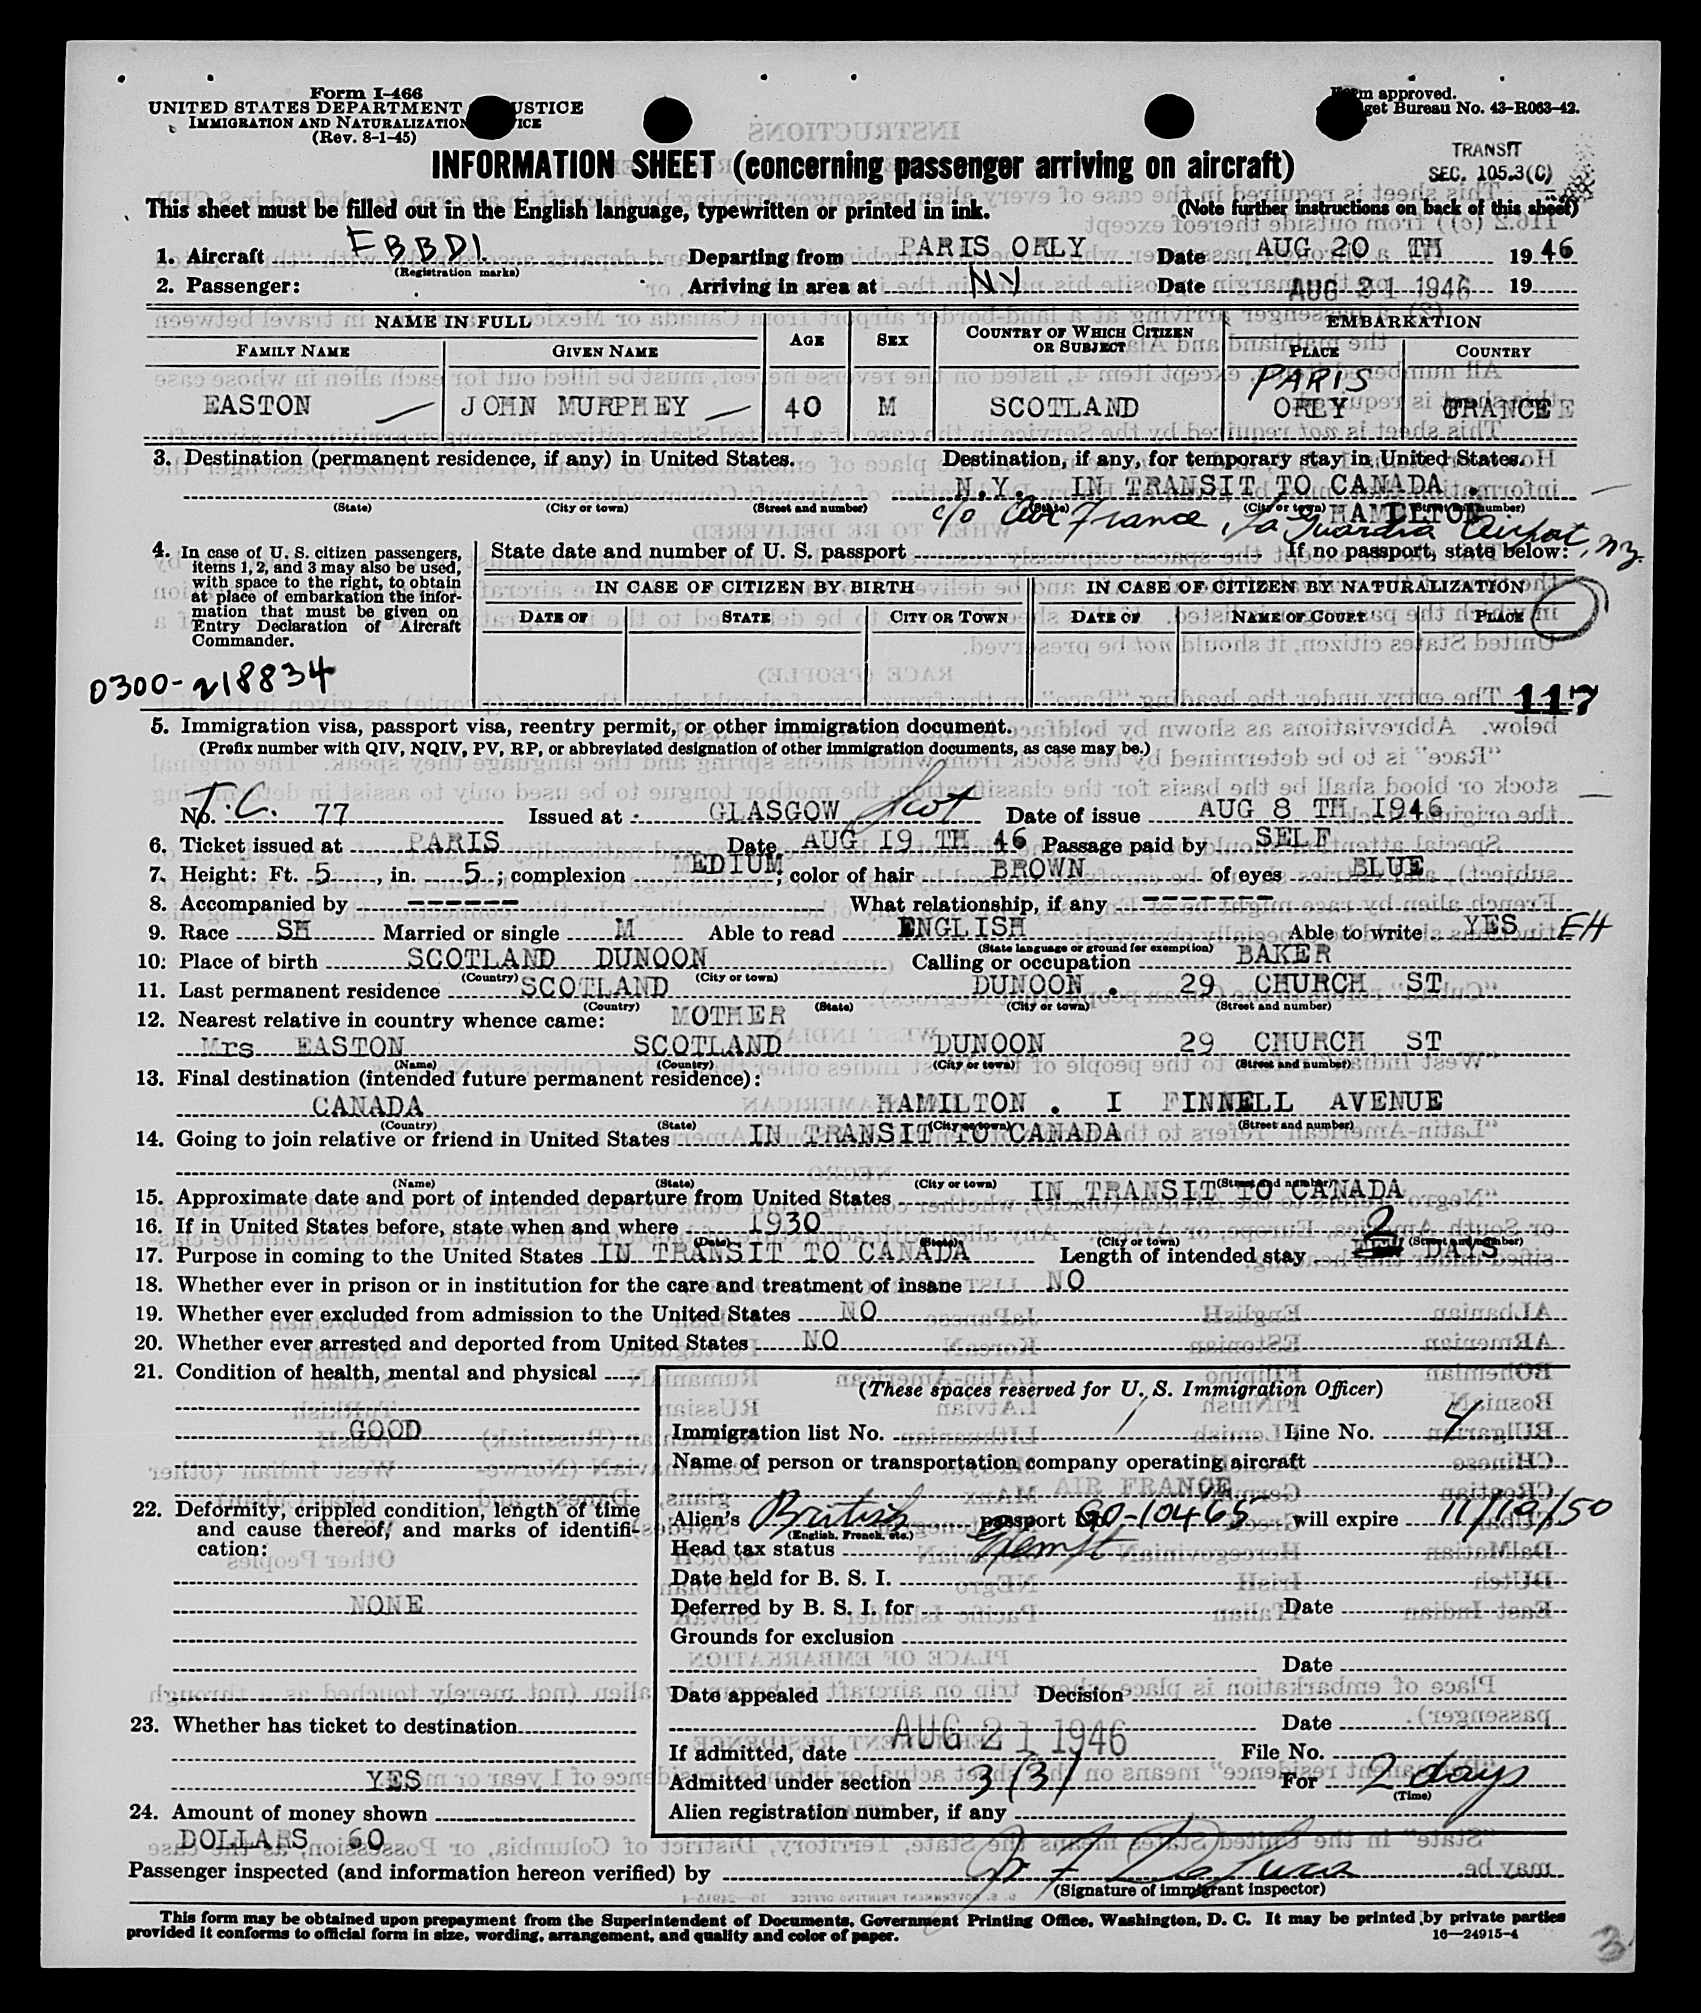 Form I-466
UNITED STATES DEPARTMENT USTICE
IMMIGRATION AND NATURALIZATION ICE
(Rev. 8-1-45)
m approved.
get Bureau No. 43-R063-42.
TRANSIT
SEC. 105.3(C)
INFORMATION SHEET (concerning passenger arriving on aircraft)
This sheet must be filled out in the English language, typewritten or printed in ink. (Note further instructions on back of this sheet)
1. Aircraft FBBDI. Departing from PARIS ORLY Date AUG 20 TH 1946
(Registration marks)
2. Passenger: Arriving in area at NY Date AUG 21 1946 19
NAME IN FULL AGE SEX COUNTRY OF WHICH CITIZEN OR SUBJECT EMBARKATION
FAMILY NAME GIVEN NAME PLACE COUNTRY
PARIS
EASTON JOHN MURPHEY 40 M SCOTLAND ORLY FRANCE
3. Destination (permanent residence, if any) in United States. Destination, if any, for temporary stay in United States.
N.Y. IN TRANSIT TO CANADA .
(State) (City or town) (Street and number) (State) (City or town) (Street and number)
HAMILTON
c/o Air France, La Guardia Airport, N.Y.
4. In case of U. S. citizen passengers, items 1, 2, and 3 may also be used, with space to the right, to obtain at place of embarkation the information that must be given on Entry Declaration of Aircraft Commander.
State date and number of U. S. passport If no passport, state below:
IN CASE OF CITIZEN BY BIRTH IN CASE OF CITIZEN BY NATURALIZATION
DATE OF STATE CITY OR TOWN DATE OF NAME OF COURT PLACE
0300-218834
117
5. Immigration visa, passport visa, reentry permit, or other immigration document.
(Prefix number with QIV, NQIV, PV, RP, or abbreviated designation of other immigration documents, as case may be.)
No. T.C. 77 Issued at GLASGOW Scot Date of issue AUG 8 TH 1946
6. Ticket issued at PARIS Date AUG 19 TH 46 Passage paid by SELF
7. Height: Ft. 5, in. 5; complexion MEDIUM; color of hair BROWN of eyes BLUE
8. Accompanied by ------ What relationship, if any -------
9. Race SH Married or single M Able to read ENGLISH Able to write YES EH
(State language or ground for exemption)
10. Place of birth SCOTLAND DUNOON Calling or occupation BAKER
(Country) (City or town)
11. Last permanent residence SCOTLAND DUNOON . 29 CHURCH ST
(Country) (State) (City or town) (Street and number)
12. Nearest relative in country whence came: MOTHER
Mrs EASTON SCOTLAND DUNOON 29 CHURCH ST
(Name) (Country) (City or town) (Street and number)
13. Final destination (intended future permanent residence):
CANADA HAMILTON . I FINNELL AVENUE
(Country) (State) (City or town) (Street and number)
14. Going to join relative or friend in United States IN TRANSIT TO CANADA
(Name) (State) (City or town) (Street and number)
15. Approximate date and port of intended departure from United States IN TRANSIT TO CANADA
16. If in United States before, state when and where 1930
(Date) (State) (City or town) (Street and number)
17. Purpose in coming to the United States IN TRANSIT TO CANADA Length of intended stay 2 DAYS
18. Whether ever in prison or in institution for the care and treatment of insane NO
19. Whether ever excluded from admission to the United States NO
20. Whether ever arrested and deported from United States NO
21. Condition of health, mental and physical
GOOD
22. Deformity, crippled condition, length of time and cause thereof, and marks of identification:
NONE
23. Whether has ticket to destination
YES
24. Amount of money shown
DOLLARS 60
(These spaces reserved for U. S. Immigration Officer)
Immigration list No. 1 Line No. 4
Name of person or transportation company operating aircraft
AIR FRANCE
Alien's British passport No. GO-10465 will expire 11/12/50
(English, French, etc.)
Head tax status Exempt
Date held for B. S. I.
Deferred by B. S. I. for Date
Grounds for exclusion
Date
Date appealed Decision
Date
If admitted, date AUG 21 1946 File No.
Admitted under section 3(3) For 2 days
(Time)
Alien registration number, if any
Passenger inspected (and information hereon verified) by
(Signature of immigrant inspector)
This form may be obtained upon prepayment from the Superintendent of Documents, Government Printing Office, Washington, D. C. It may be printed by private parties
provided it conforms to official form in size, wording, arrangement, and quality and color of paper. 16—24915-4
3